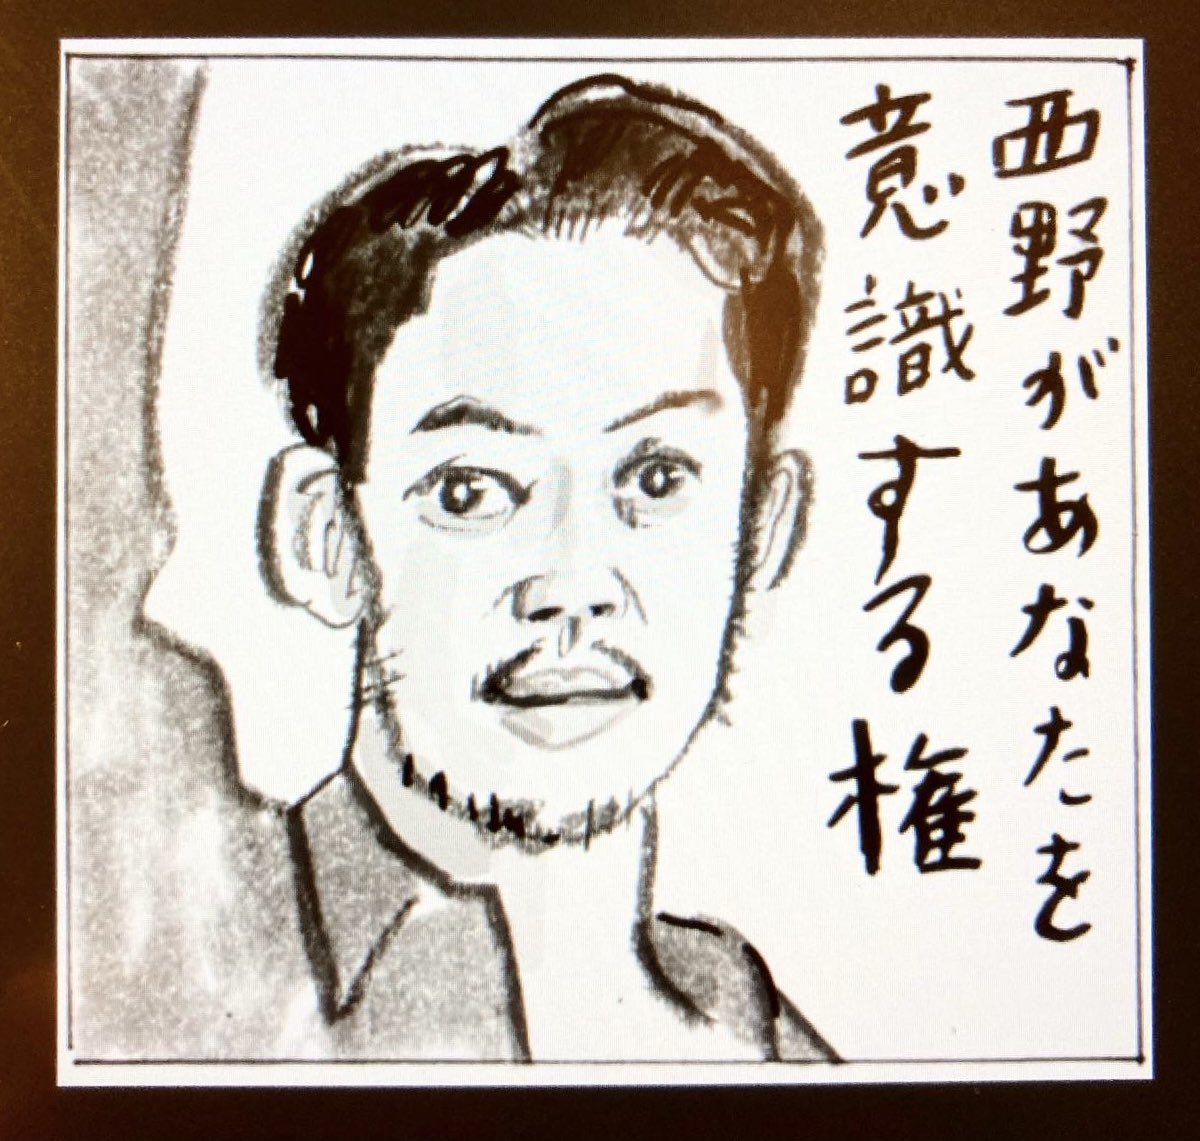 西野があなたを
意識する権